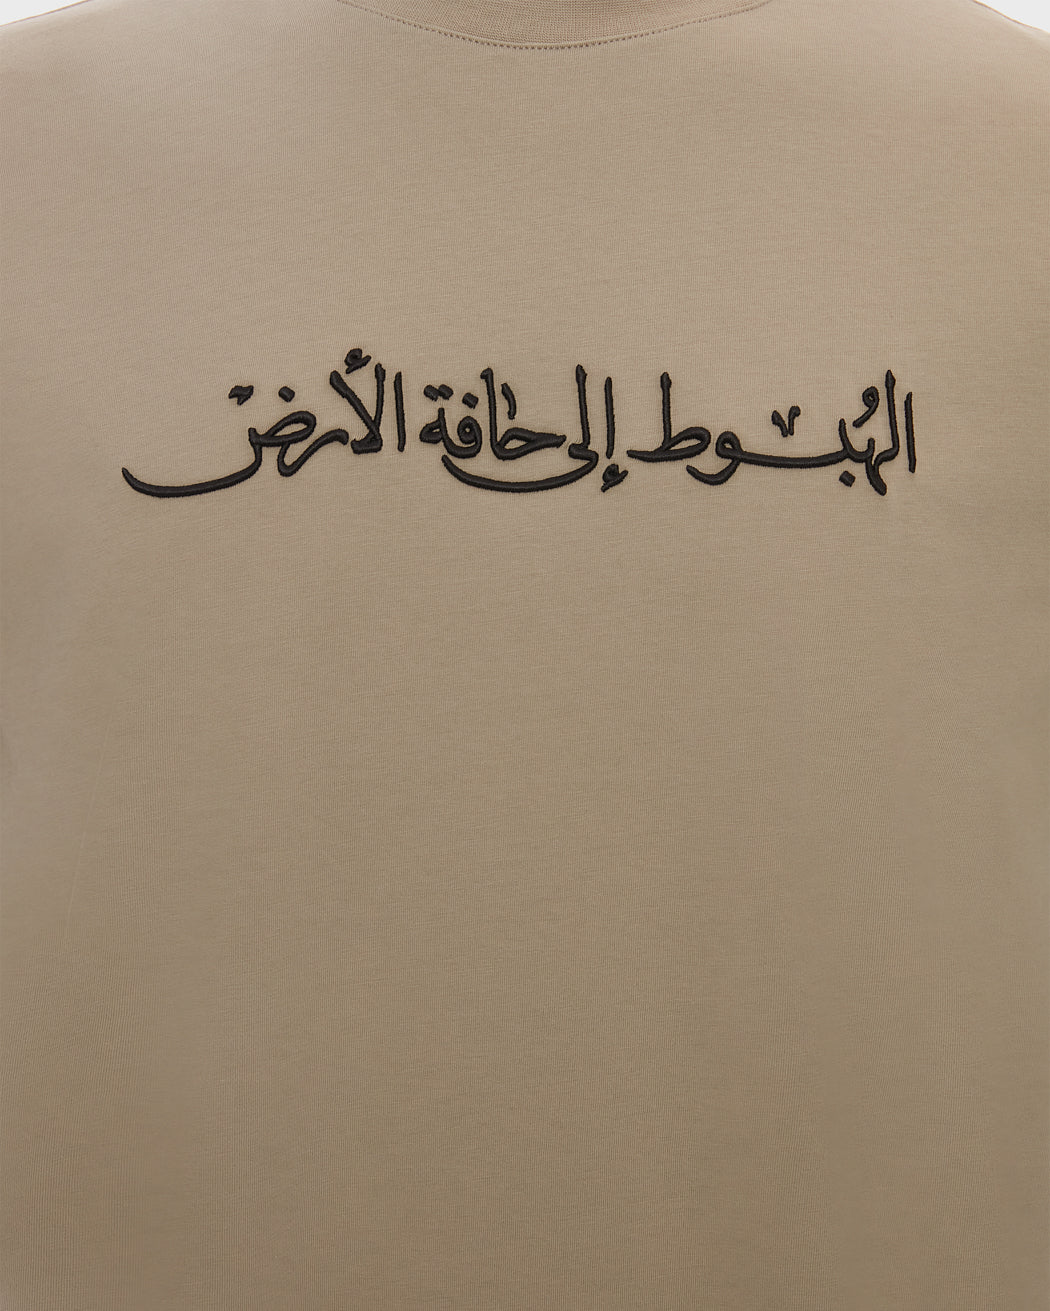 الهُبوط إلى حافة الأرض